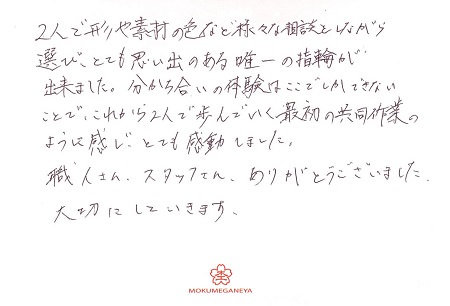 2人で形や素材の色など様々な相談をしながら
選び、とても思い出のある唯一の指輪が
出来ました。分かち合いの体験はここでしかできない
ことで、これから2人で歩んでいく最初の共同作業の
ように感じ、とても感動しました。
職人さん、スタッフさん、ありがとうございました。
大切にしていきます。
MOKUMEGANEYA